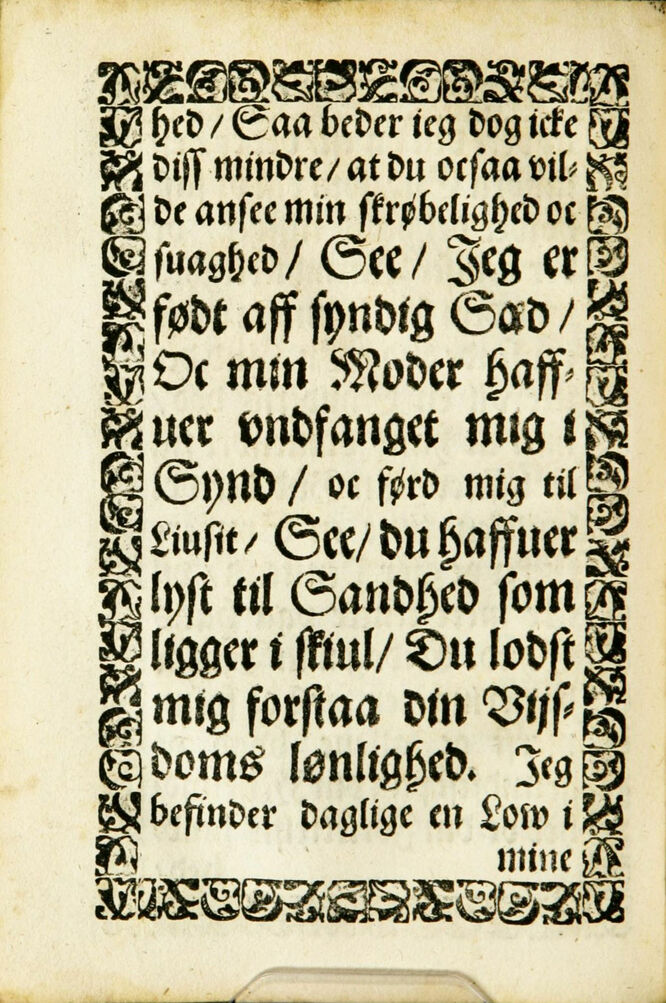 hed / Saa beder ieg dog icke
diss mindre / at du ocsaa vil-
de ansee min skrøbelighed oc
suaghed / See / Jeg er
født aff syndig Sæd /
Oc min Moder haff-
uer vndfanget mig i
Synd / oc førd mig til
Liusit / See / du haffuer
lyst til Sandhed som
ligger i skiul / Du lodst
mig forstaa din Vijs-
doms lønlighed. Jeg
befinder daglige en Low i
mine